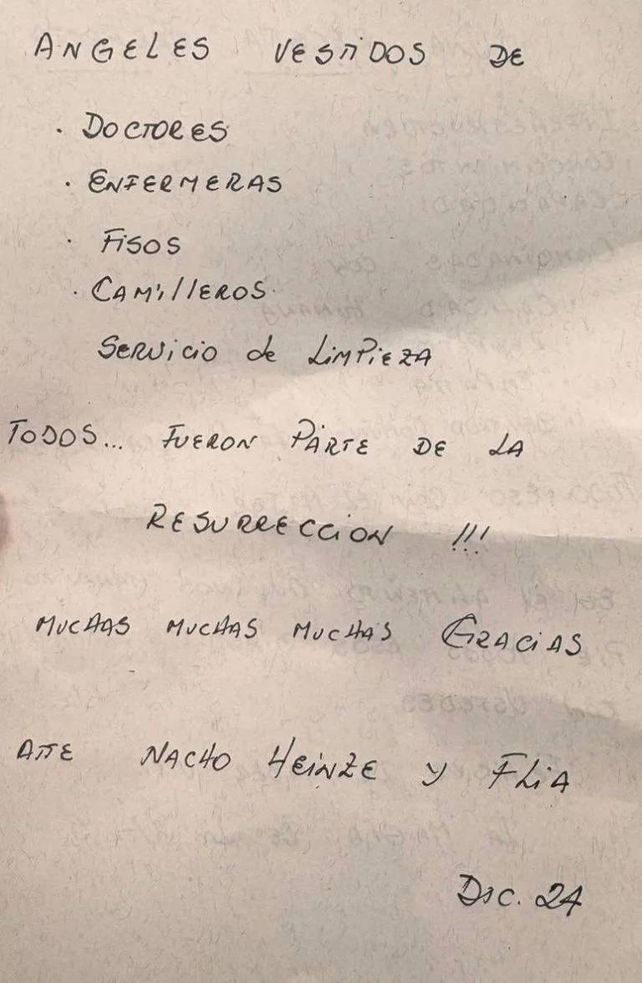 ANGELES VESTIDOS DE
· DOCTORES
· ENFERMERAS
· FISOS
· CAMILLEROS
SERVICIO de LIMPIEZA
TODOS... FUERON PARTE DE LA
RESURRECCION !!!
MUCHAS MUCHAS MUCHAS GRACIAS
ATTE NACHO HEINZE Y FLIA
DIC. 24